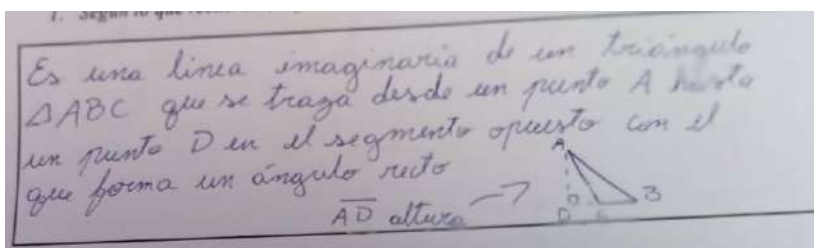 1. Según lo que
Es una linea imaginaria de un triángulo
△ABC que se traza desde un punto A hasta
un punto D en el segmento opuesto con el
que forma un ángulo recto
A
B
D
C
AD altura